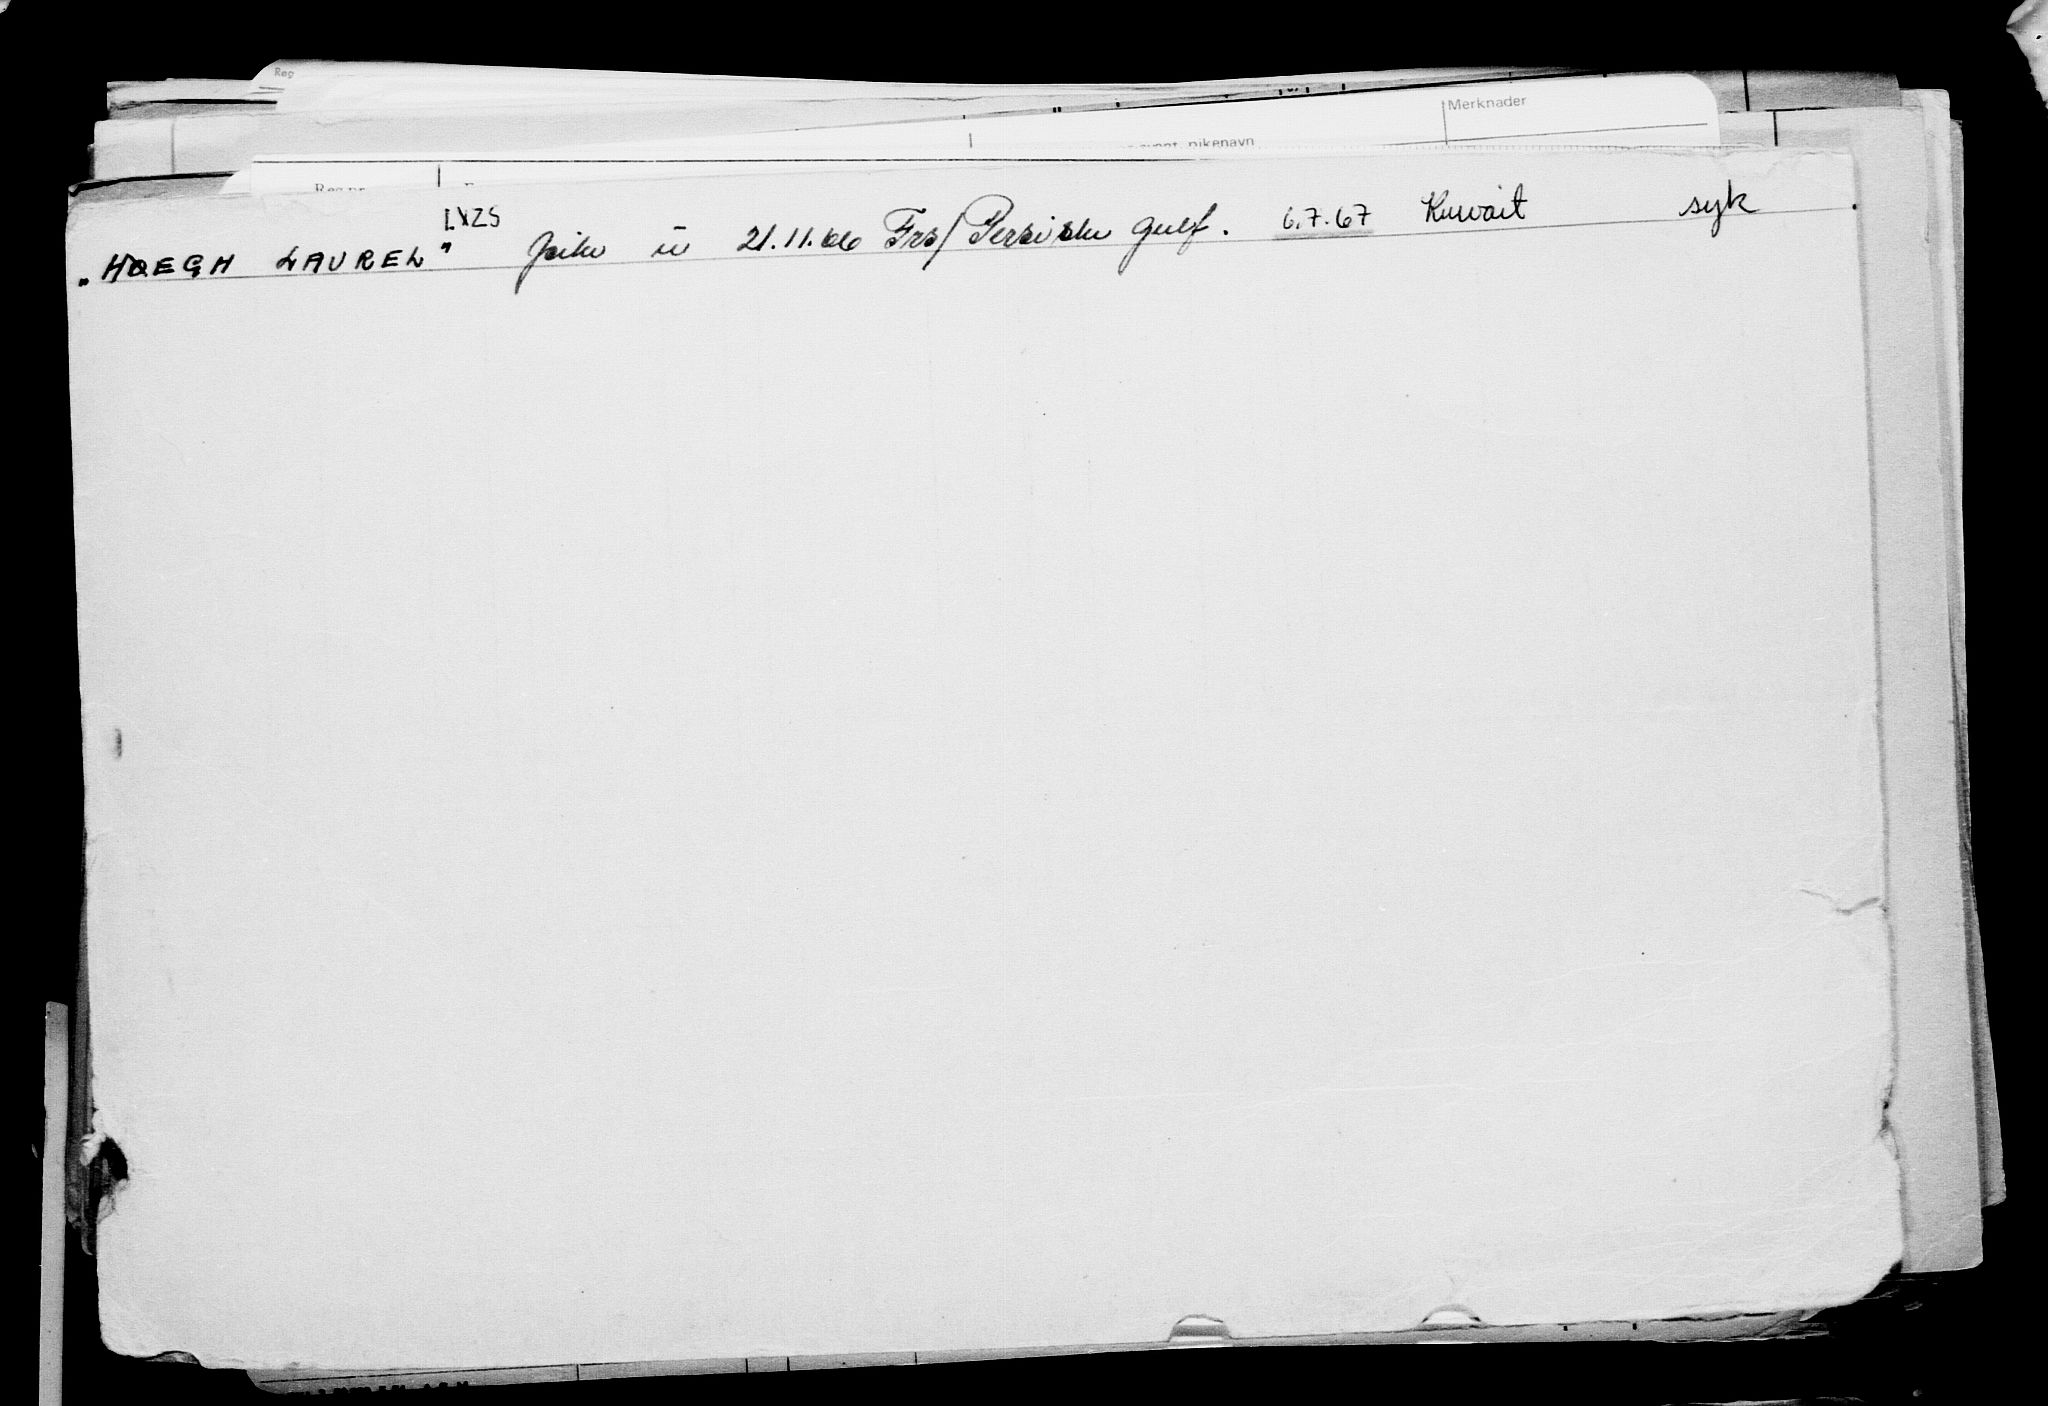 Reg
Merknader
pikenavn
Reg.nr.
LXZS
„HOEGH LAUREL" 21.11.66 Frs/Persiske gulf. 6.7.67 Kuwait syk